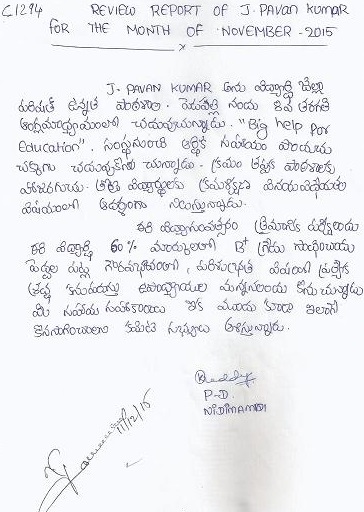 C1294 REVIEW REPORT OF J. PAVAN KUMAR
FOR THE MONTH OF NOVEMBER - 2015
J. PAVAN KUMAR అను విద్యార్థి జిల్లా
పరిషత్ ఉన్నత పాఠశాల, నందు 8వ తరగతి
ఆంగ్లమాధ్యమంలో చదువుచున్నాడు. "Big help For
Education". సంస్థనుంచి ఆర్థిక సహాయం పొందుచు
చక్కగా చదువుకొను చున్నాడు. క్రమం తప్పక పాఠశాలకు
హాజరగును. తోటి విద్యార్థులకు క్రమశిక్షణ వినయవిధేయతల
విషయంలో ఆదర్శంగా నిలుస్తున్నాడు.
ఈ విద్యాసంవత్సరం త్రైమాసిక పరీక్షలందు
ఈ విద్యార్థి 60% మార్కులతో B+ గ్రేడు సాధించాడు
పెద్దల పట్ల గౌరవభావంతో, పరిశుభ్రత విషయంలో ప్రత్యేక
శ్రద్ధ కనపరుస్తు ఉపాధ్యాయుల మన్ననలందు కొను చున్నాడు
మీ సహాయ సహకారాలు ఇక ముందు కూడా ఇలాగే
కొనసాగించాలని కమిటీ సభ్యులు ఆశిస్తున్నారు.
Reddy
P-D.
NIDIMAMIDI
11/12/15